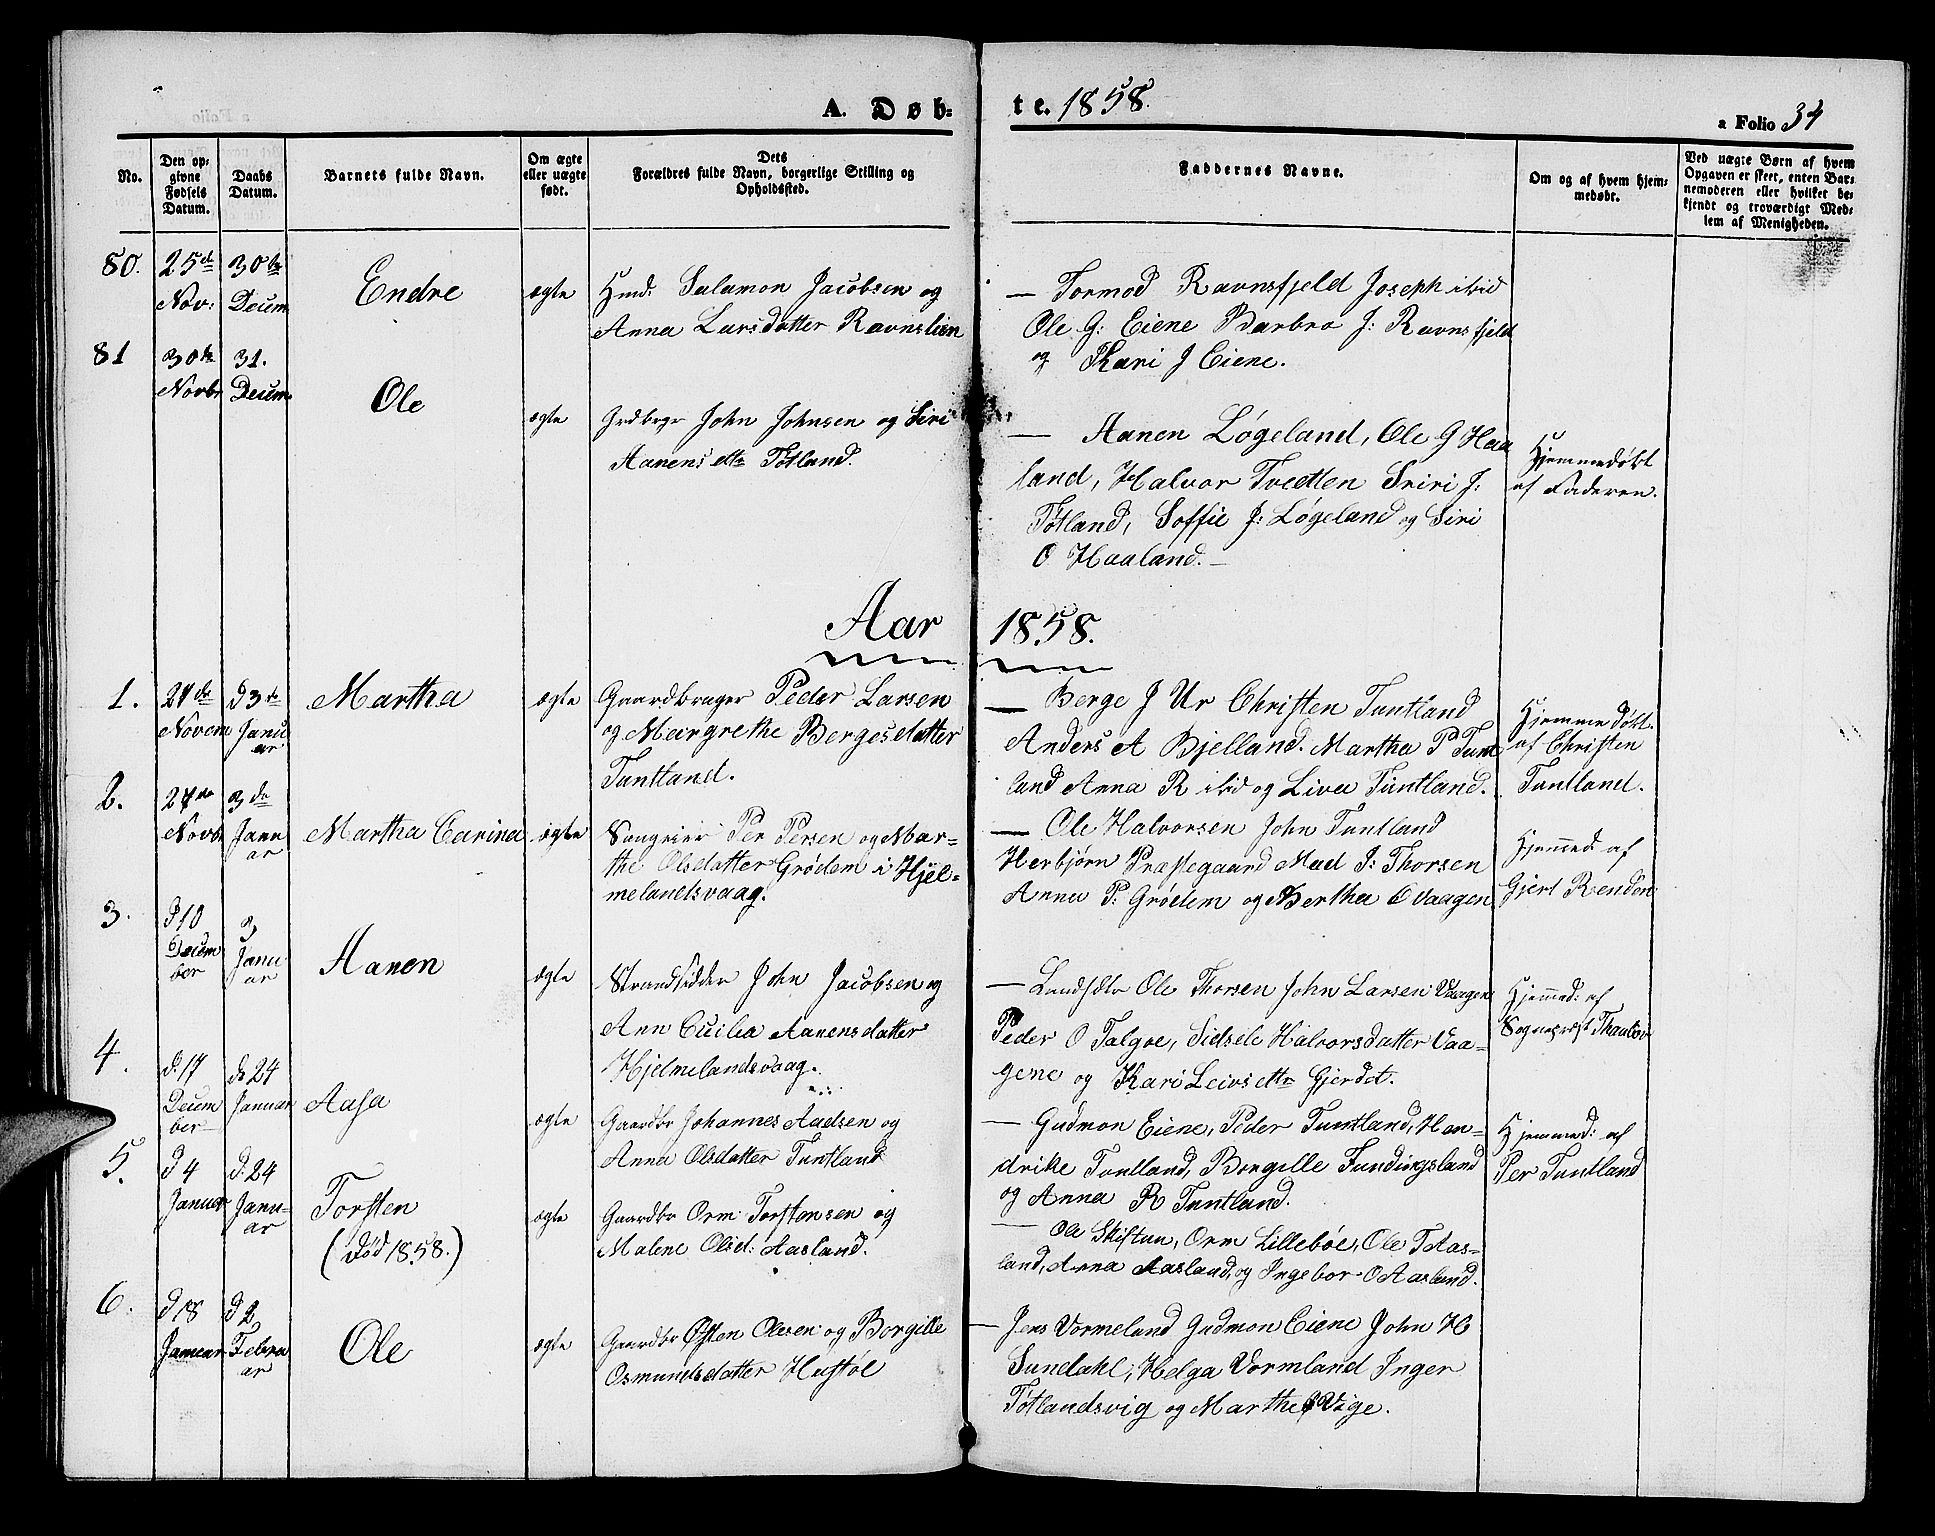 A. Døb-te. 1858.
a Folio 34
No.
Den opgivne Fødsels Datum.
Daabs Datum.
Barnets fulde Navn.
Om ægte eller uægte født.
Dets Forældres fulde Navn, borgerlige Stilling og Opholdssted.
Faddernes Navne.
Om og af hvem hjemmedøbt.
Ved uægte Børn af hvem Opgaven er skeet, enten Barnemoderen eller hvilket bekjendt og troværdigt Medlem af Menigheden.
80.
25de Nov:
30te Decem
Endre
ægte
Hmd: Salamon Jacobsen og
Anna Larsdatter Ravnslien
— Tormod Ravnsfjeld Joseph ibid
Ole G: Eiene Barbro J: Ravnsfjeld
og Kari J Eiene.
81
30te Novbr
31. Decem
Ole
ægte
Grdbrgr John Johnsen og Siri
Aanensdtr Tøtland.
— Aanen Løgeland, Ole G Haa
land, Halvor Tvedten Sriri J:
Tøtland, Soffie J: Løgeland og Siri
O Haaland. —
Hjemmedøbt
af Faderen.
Aar 1858.
1.
27de Novem
D 3de Januar
Martha
ægte
Gaardbruger Peder Larsen
og Margrethe Bergesdatter
Tuntland.
— Berge J Ur Christen Tuntland
Anders A Bjelland. Martha P Tunt
land Anna R ibid og Liva Tuntland.
Hjemmedøbt
af Christen
Tuntland.
2.
27de Novb
3de Januar
Martha Carina
ægte
Per Persen og Mar-
the Olsdatter Grødem i Hjel-
melandsvaag.
— Ole Halvorsen John Tuntland
Herbjørn Præstegaard Mad J: Thorsen
Anna P: Grødem og Bertha O Vaagen
Hjemmed: af
Gjert Rendøn
3.
D 10 Decem
ber
3 Janu
ar
Aanen
ægte
Strandsidder John Jacobsen og
Ann Cicilia Aanensdatter
Hjelmelandsvaag.
— Ole Thorsen John Larsen Vaagen
Peder O Talgøe, Sidsele Halvorsdatter Vaa-
gene og Kari Leivsdtr Gjerdet.
Hjemmed: af
Sognepræst Thaulow
4.
d. 17 Decem
ber
de 24 Januar
Aasa
ægte
Gaardbr Johannes Aadsen og
Anna Olsdatter Tuntland
— Gudmon Eiene, Peder Tuntland, Hen-
drike Tuntland, Borgille Fundingsland
og Anna R Tuntland.
Hjemmed: af
Per Tuntland
5.
D 4 Januar
D. 24 Janu-
ar
Torsten
(død 1858.)
ægte
Gaardbr Orm Torstensen og
Malene Olsd: Aasland.
— Ole Skiftun, Orm Lillebøe, Ole T Aas-
land, Anna Aasland, og Ingebor O Aasland.
6.
D 18 Januar
D 2 Febru
ar
Ole
ægte
Gaardbr Østen Olesen og Borgille
Osmundsdatter Hustøl
— Jens Vormeland Gudmon Eiene John H
Sundahl, Helga Vormland Inger
Tøtlandsvig og Marthe J Vige.